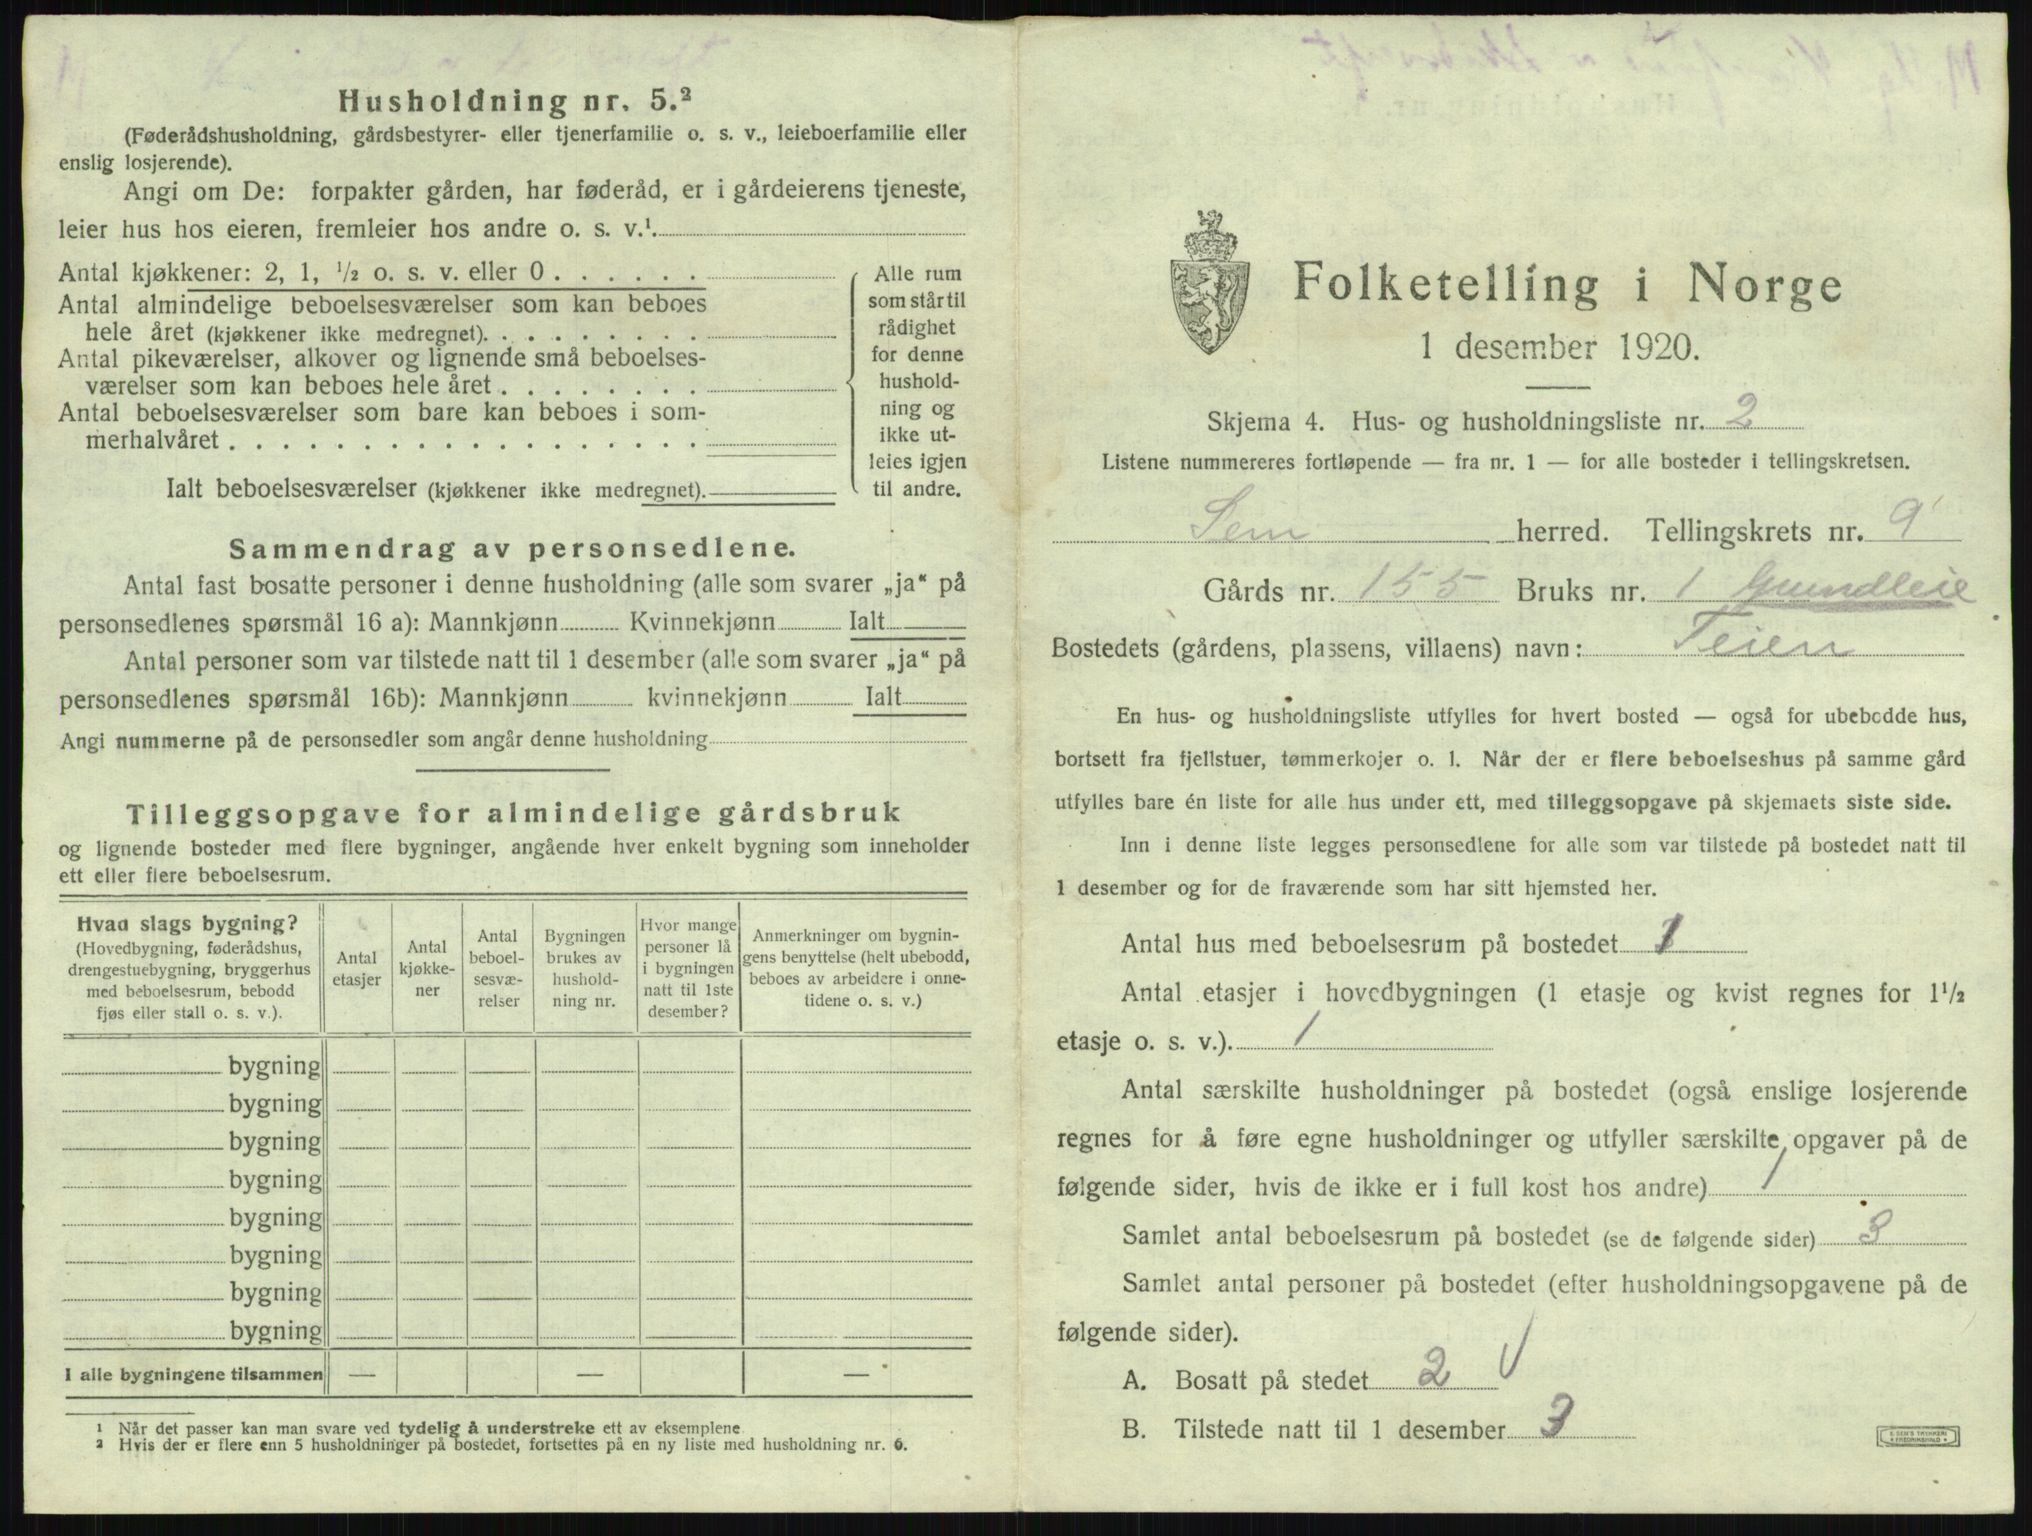 Husholdning nr. 5.²
(Føderådshusholdning, gårdsbestyrer- eller tjenerfamilie o. s. v., leieboerfamilie eller
enslig losjerende).
Angi om De: forpakter gården, har føderåd, er i gårdeierens tjeneste,
leier hus hos eieren, fremleier hos andre o. s. v.¹
Antal kjøkkener: 2, 1, ½ o. s. v. eller 0
Antal almindelige beboelsesværelser som kan beboes
hele året (kjøkkener ikke medregnet).
Antal pikeværelser, alkover og lignende små beboelses-
værelser som kan beboes hele året
Antal beboelsesværelser som bare kan beboes i som-
merhalvåret
Ialt beboelsesværelser (kjøkkener ikke medregnet).
Alle rum
som står til
rådighet
for denne
hushold-
ning og
ikke ut-
leies igjen
til andre.
Sammendrag av personsedlene.
Antal fast bosatte personer i denne husholdning (alle som svarer „ja“ på
personsedlenes spørsmål 16 a): Mannkjønn Kvinnekjønn Ialt
Antal personer som var tilstede natt til 1 desember (alle som svarer „ja“ på
personsedlenes spørsmål 16b): Mannkjønn kvinnekjønn Ialt
Angi nummerne på de personsedler som angår denne husholdning
Tilleggsopgave for almindelige gårdsbruk
og lignende bosteder med flere bygninger, angående hver enkelt bygning som inneholder
ett eller flere beboelsesrum.
Hvad slags bygning?
(Hovedbygning, føderådshus,
drengestuebygning, bryggerhus
med beboelsesrum, bebodd
fjøs eller stall o. s. v.).
Antal
etasjer
Antal
kjøkke-
ner
Antal
beboel-
sesvæ-
relser
Bygningen
brukes av
hushold-
ning nr.
Hvor mange
personer lå
i bygningen
natt til 1ste
desember?
Anmerkninger om bygnin-
gens benyttelse (helt ubebodd,
beboes av arbeidere i onne-
tidene o. s. v.)
bygning
bygning
bygning
bygning
bygning
bygning
bygning
bygning
I alle bygningene tilsammen — — —
¹ Når det passer kan man svare ved tydelig å understreke ett av eksemplene
² Hvis der er flere enn 5 husholdninger på bostedet, fortsettes på en ny liste med husholdning nr. 6.
Folketelling i Norge
1 desember 1920.
Skjema 4. Hus- og husholdningsliste nr. 2
Listene nummereres fortløpende — fra nr. 1 — for alle bosteder i tellingskretsen.
Sem herred. Tellingskrets nr. 9
Gårds nr. 155 Bruks nr. 1 Grundleie
Bostedets (gårdens, plassens, villaens) navn: Teien
En hus- og husholdningsliste utfylles for hvert bosted — også for ubebodde hus,
bortsett fra fjellstuer, tømmerkojer o. l. Når der er flere beboelseshus på samme gård
utfylles bare én liste for alle hus under ett, med tilleggsopgave på skjemaets siste side.
Inn i denne liste legges personsedlene for alle som var tilstede på bostedet natt til
1 desember og for de fraværende som har sitt hjemsted her.
Antal hus med beboelsesrum på bostedet 1
Antal etasjer i hovedbygningen (1 etasje og kvist regnes for 1½
etasje o. s. v.). 1
Antal særskilte husholdninger på bostedet (også enslige losjerende
regnes for å føre egne husholdninger og utfyller særskilte opgaver på de
følgende sider, hvis de ikke er i full kost hos andre) 1
Samlet antal beboelsesrum på bostedet (se de følgende sider) 3
Samlet antal personer på bostedet (efter husholdningsopgavene på de
følgende sider).
A. Bosatt på stedet 2 √
B. Tilstede natt til 1 desember 3